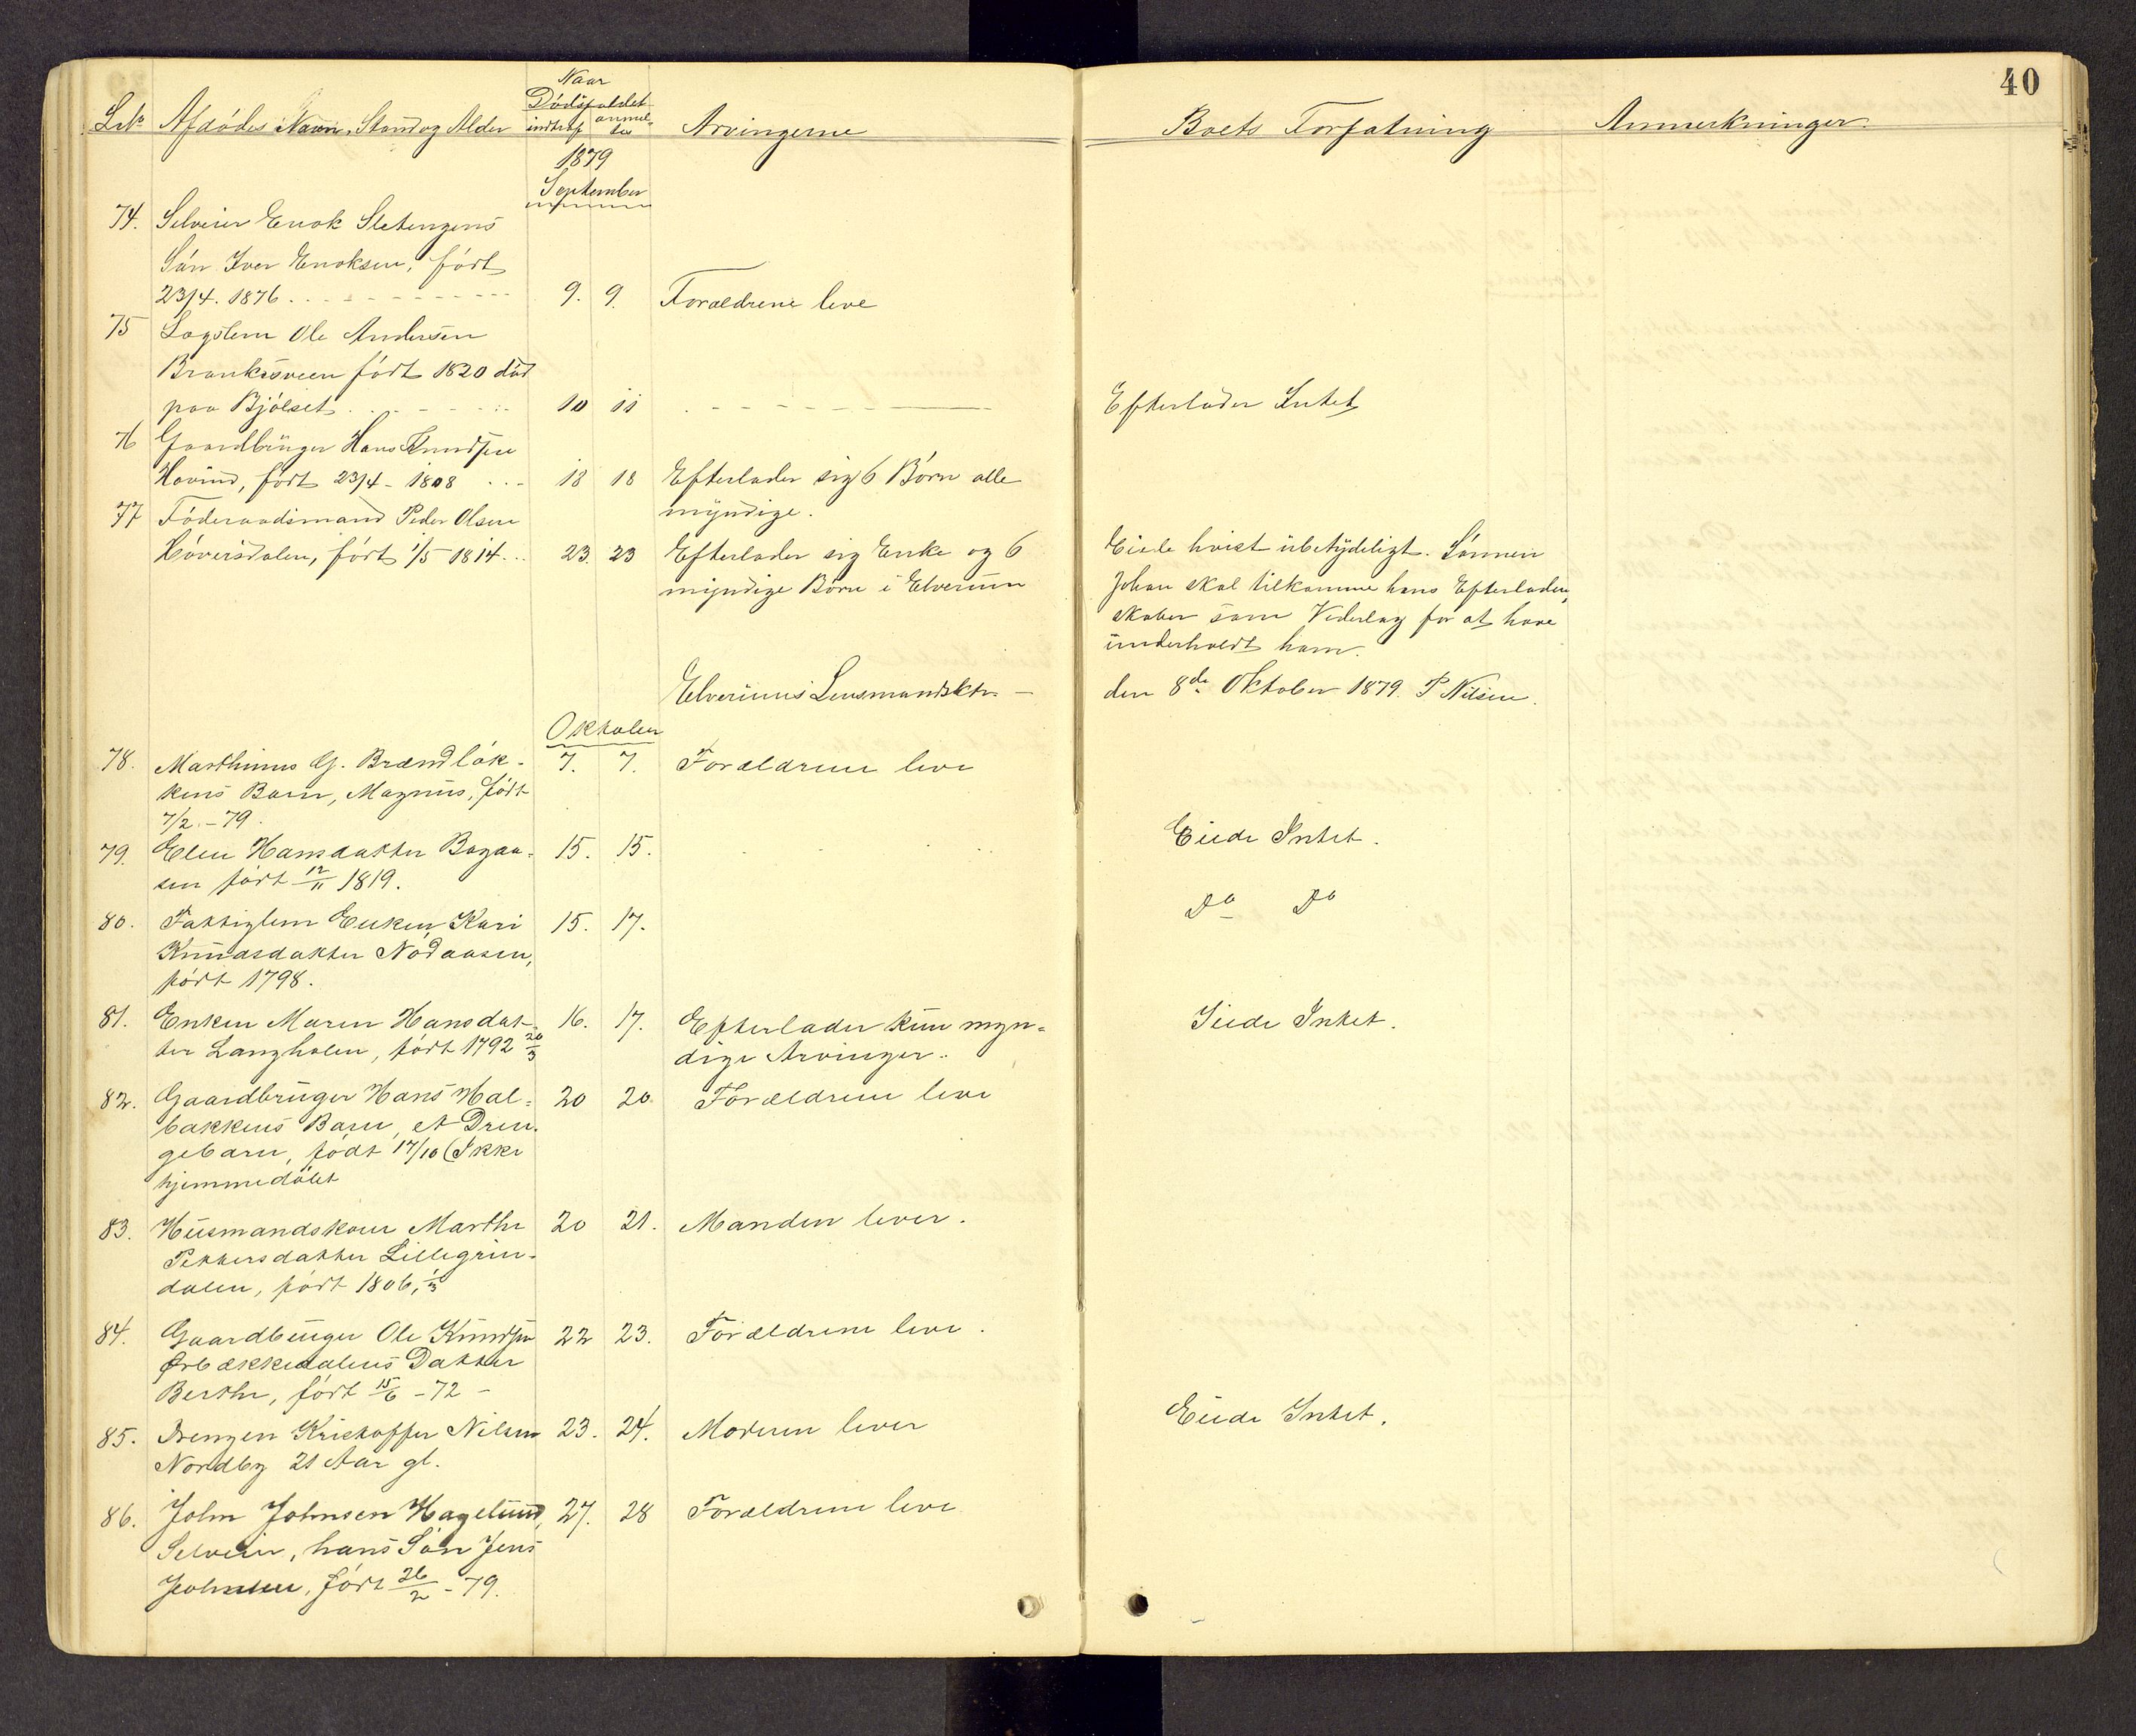 40
Naar
Dödsfaldet
Lb№ Afdödes Navn, Stand og Alder indtraf anmeldes Arvingerne Boets Forfatning Anmerkninger.
1879
September
74. Selveier Enok Sletengens
Sön Iver Enoksen, født
23/4. 1876. 9. 9. Forældrene leve
75 Logslem Ole Andersen
Brankesveen født 1820 död
paa Bjölset. 10 11 Efterlader Intet
76 Gaardbruger Hans Knudsen
Hovind, født 23/4 - 1808 18 18 Efterlader sig 6 Börn alle
myndige.
77 Föderaadsmand Peder Olsen
Höversdalen, født 1/5 1814. 23. 23 Efterlader sig Enke og 6 Eiede hvist ubetydeligt. Sönnen
myndige Börn i Elverum Johan skal tilkomme hans Efterladen,
skaber som Vederlag for at have
underholdt ham.
Elverums Lensmandsktr. — den 8de Oktober 1879. P Nilsen.
Oktober
78. Marthinus G. Brændlök- 7. 7. Forældrene leve
kens Barn, Magnus, født
7/2 - 79.
79. Elen Hansdatter Bagaa- 15. 15. Eiede Intet.
sen født 12/11 1819.
80. Fattiglem Enken Kari 15. 17. Do Do
Knudsdatter Nödaasen,
født 1798.
81. Enken Maren Hansdat- 16. 17. Efterlader kun myn- Eiede Intet.
ter Langholen, født 1792 26/3 dige Arvinger.
82. Gaardbruger Hans Hal- 20 20. Forældrene leve
bakkens Barn, et Dren-
gebarn, födt 17/10 (Ikke
hjemmedöbt
83. Husmandskone Marthe 20 21. Manden lever.
Pettersdatter Lillegrin-
dalen, født 1806, 1/3
84. Gaardbruger Ole Knudsen 22 23. Forældrene leve.
Ørbækkedalens Datter
Berthe, født 15/6 - 72 -
85. Drengen Kristoffer Nilsen 23. 24. Moderen lever Eiede Intet.
Nordby 21 Aar gl.
86. John Johnsen Hagelund, 27. 28 Forældrene leve
Selveier, hans Sön Jens
Johnsen, født 26/2 - 79.